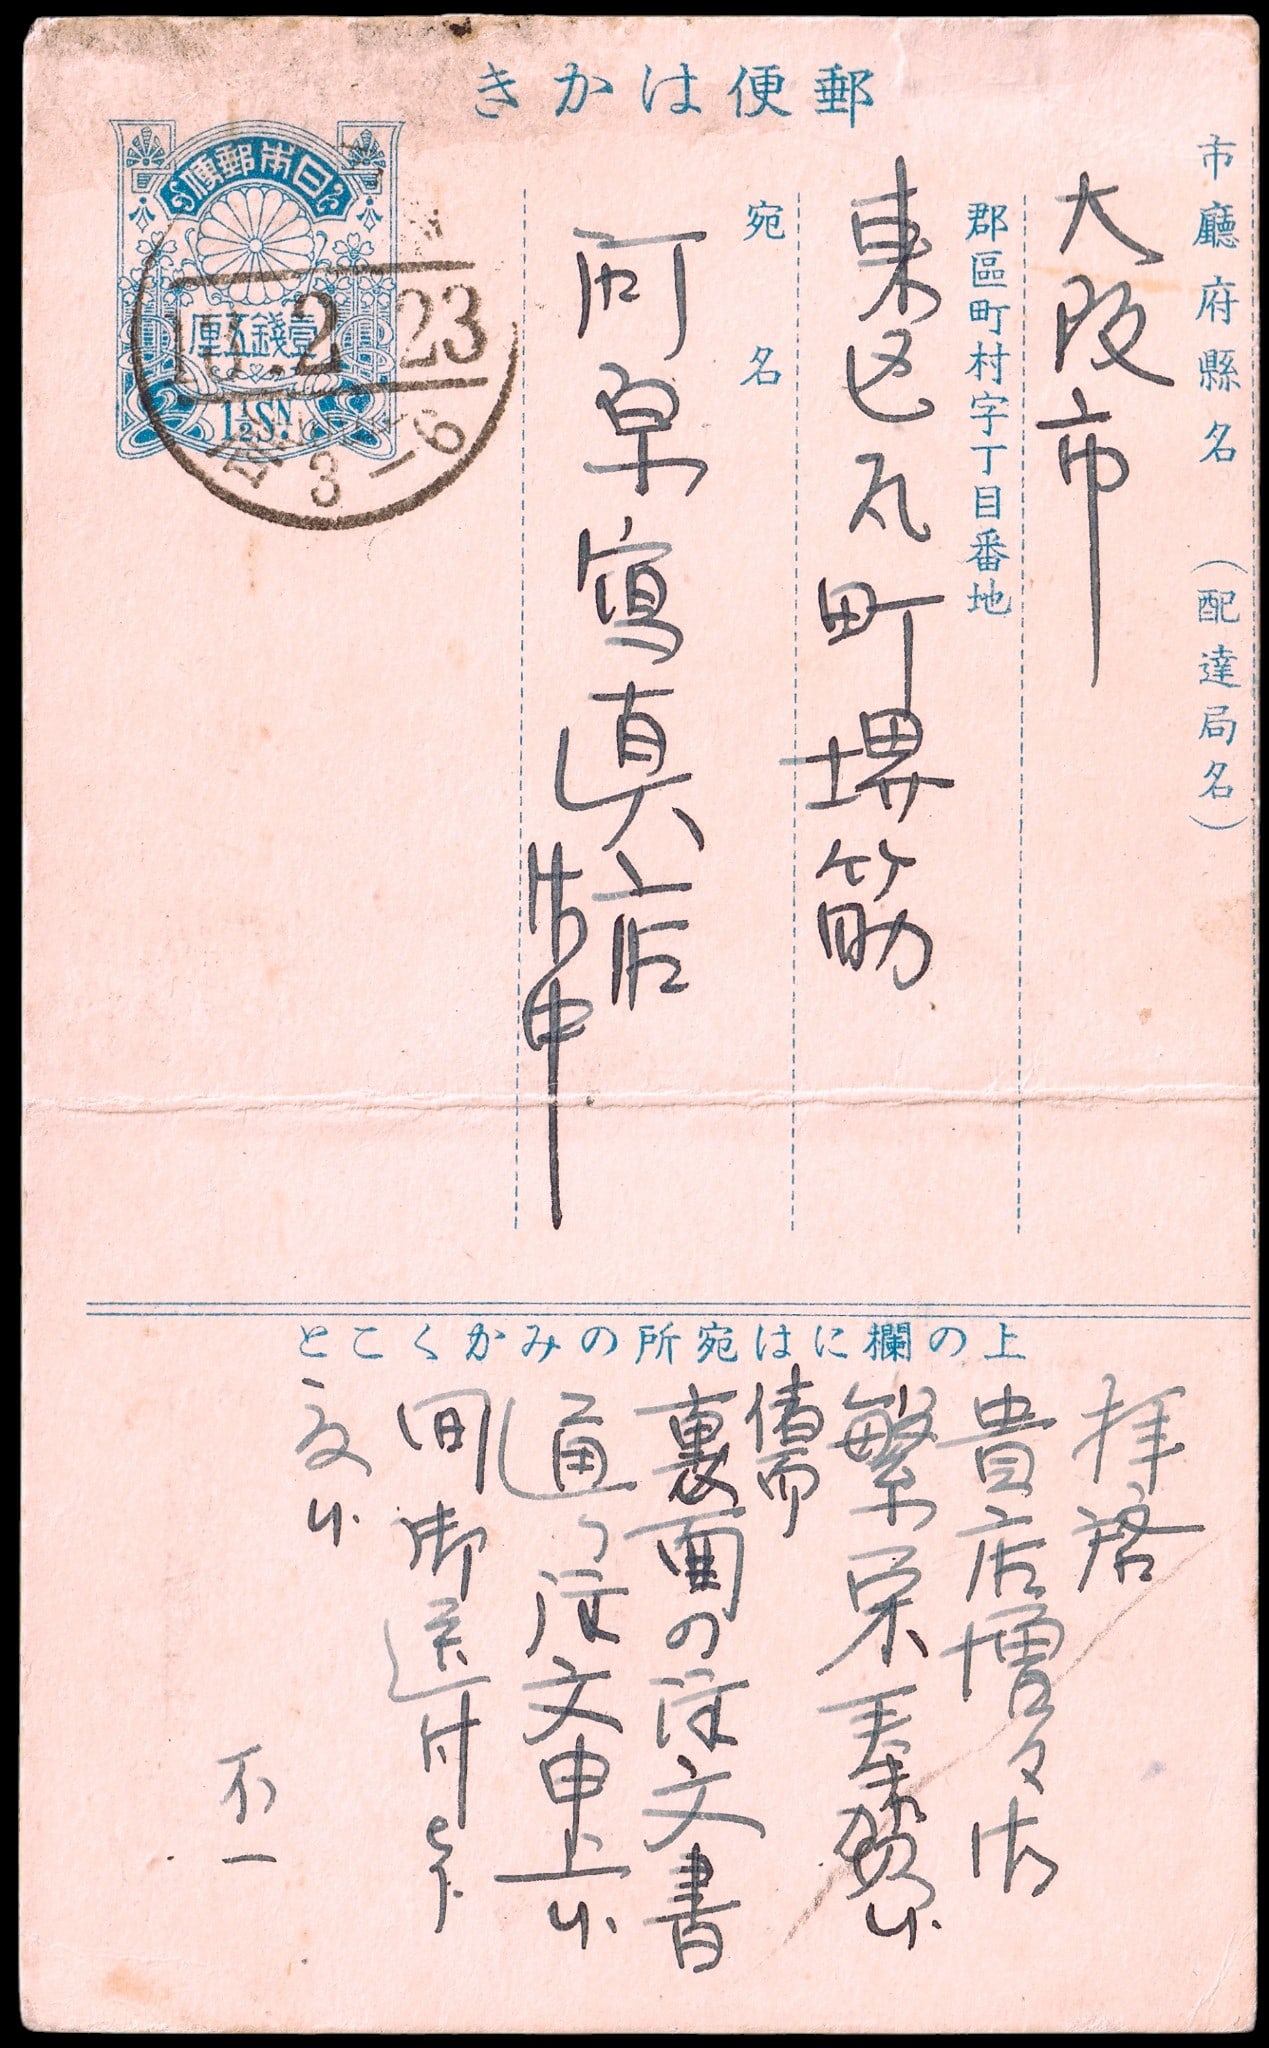 郵便はかき
日本郵便
壹錢五厘
1½SN.
2 23
3-6
市廳府縣名 (配達局名)
大阪市
郡區町村字丁目番地
東区瓦町堺筋
宛名
寫真店
御中
上の欄には宛所のみかくこと
拝啓
貴店増々御
繁栄奉賀候
借而
裏面の注文書
通り注文申上候
間御送付被下
度候
不一